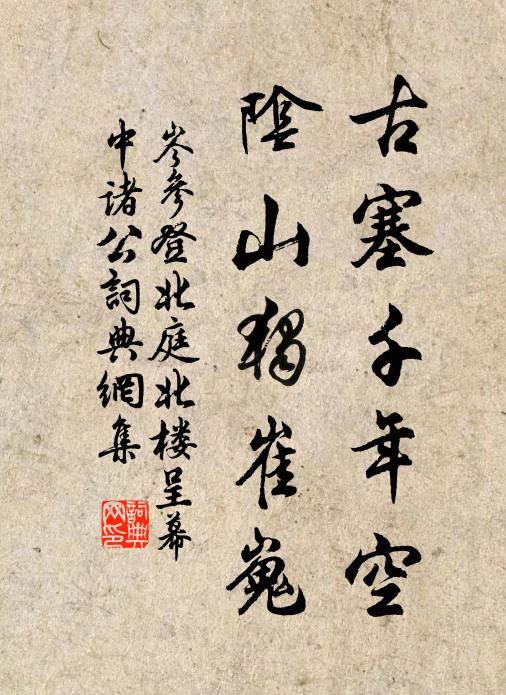 古塞千年空
陰山獨崔嵬
岑參登北庭北楼呈幕
中諸公詞典網集
詞典
网印